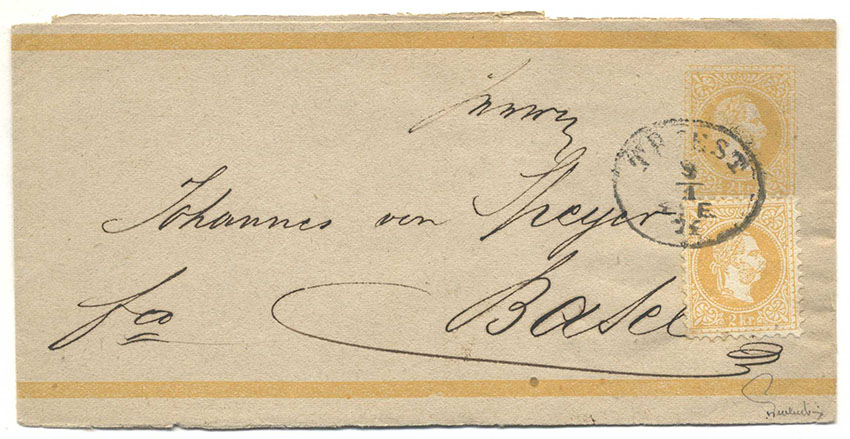 Herrn
TRIEST
9
1
F.
2 kr.
Johannes von Speyer
2 kr.
fco
Basel